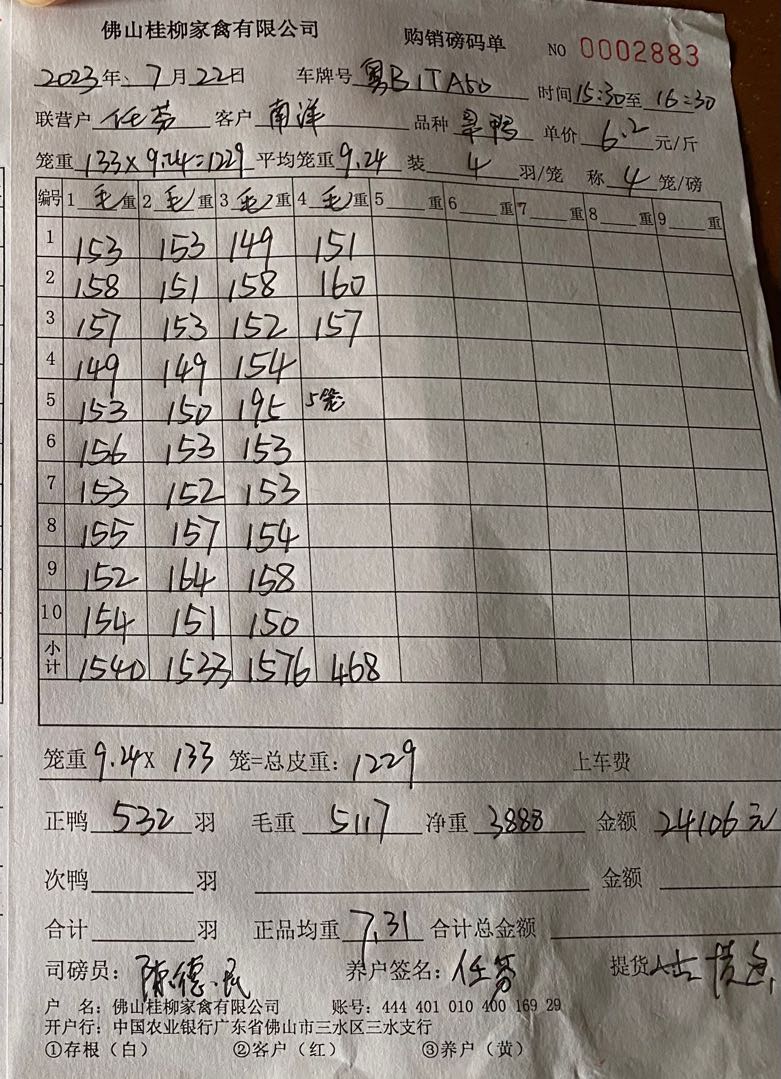 佛山桂柳家禽有限公司 购销磅码单 NO 0002883
2023年、7月22日 车牌号 粤B1TA50 时间15:30至16:30
联营户 任芬 客户 南洋 品种 旱鸭 单价 6.2 元/斤
笼重 133×9.24=1229 平均笼重9.24 装 4 羽/笼 称 4 笼/磅
编号 1 毛重 2 毛重 3 毛重 4 毛重 5 重 6 重 7 重 8 重 9 重
1 153 153 149 151
2 158 151 158 160
3 157 153 152 157
4 149 149 154
5 153 150 195 5笼
6 156 153 153
7 153 152 153
8 155 157 154
9 152 164 158
10 154 151 150
小计 1540 1533 1576 468
笼重9.24× 133 笼=总皮重：1229 上车费
正鸭 532 羽 毛重 5117 净重 3888 金额 24106元
次鸭 羽 金额
合计 羽 正品均重 7.31 合计总金额
司磅员：陈德民 养户签名：任芬 提货人
户 名：佛山桂柳家禽有限公司 账号：444 401 010 400 169 29
开户行：中国农业银行广东省佛山市三水区三水支行
①存根（白） ②客户（红） ③养户（黄）